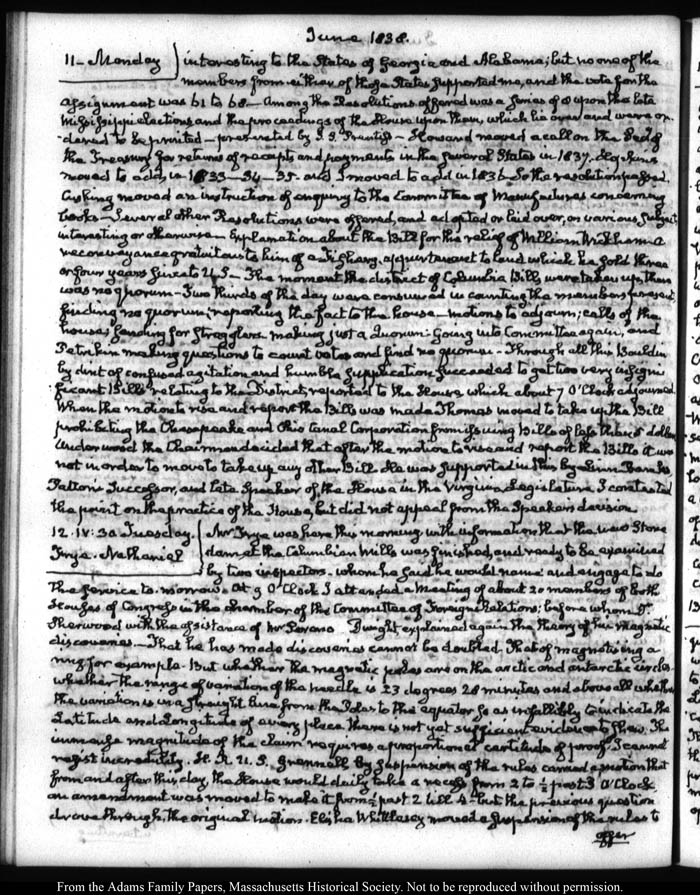 June 1838.
11 - Monday
interesting to the States of Georgia and Alabama; but no one of the
members from either of those States supported me, and the vote for the
assignment was 61 to 68 - Among the Resolutions offered was a series of 8 upon the late
Mississippi elections and the proceedings of the House upon them, which lie over and were or-
-dered to be printed - presented by S. S. Prentiss - Howard moved a call on the Sec.y of
the Treasury for returns of receipts and payments in the several States in 1837.
moved to add, in 1833-34-35- and I moved to add in 1836 - So the resolution passed.
Cushing moved an instruction of enquiry to the Committee of Manufactures concerning
books - Several other Resolutions were offered, and adopted or laid over, on various subjects
interesting or otherwise - Explanation about the Bill for the relief of William Wickham - a
reconveyance gratuitous to him of a appurtenant to land which he sold three
or four years since to U.S. - The moment the district of Columbia Bills were taken up, there
was no quorum - Two thirds of the day were consumed in counting the members present,
finding no quorum; reporting the fact to the house - motions to adjourn; calls of the
house; sending for stragglers - making just a Quorum - Going into Committee again, and
Petrikin making questions to count votes and find no quorum - Through all this Bouldin
by dint of confused agitation and humble supplication succeeded to get two very insigni-
ficant Bills relating to the District, reported to the House, which about 7 O'Clock adjourned
When the motion to rise and report the Bills was made Thomas moved to take up the Bill
prohibiting the Chesapeake and Ohio Canal Corporation from issuing Bills of less than 5 dollars
Underwood the Chairman decided that after the motion to rise and report the Bills it was
not in order to move to take up any other Bill. He was supported in this by Linn Banks
Patton's successor, and late Speaker of the House in the Virginia Legislature. I contested
the point on the practice of the House, but did not appeal from the Speaker's decision
12. IV:30 Tuesday.
Frye. Nathaniel
Mr Frye was here this morning with information that the new Stone
dam at the Columbian Mills was finished, and ready to be examined
by two inspectors, whom he said he would name and engage to do
the service to-morrow. At 9 O'Clock I attended a meeting of about 20 members of both
Houses of Congress in the chamber of the Committee of Foreign Relations; before whom Dr
Sherwood with the assistance of Mr Dwight explained again the theory of his magnetic
discoveries - That he has made discoveries cannot be doubted. That of magnetising a
ring for example. But whether the magnetic poles are on the arctic and antarctic circles
whether the range of variation of the needle is 23 degrees 28 minutes and above all whether
the variation is in a straight line from the Poles to the equator so as infallibly to indicate the
Latitude and Longitude of every place there is not yet sufficient evidence to shew. The
immense magnitude of the claim requires a proportioned certitude of proof. I cannot
resist incredulity. H. R. U. S. Grennell by suspension of the rules carried a motion that
from and after this day, the House would daily take a recess from 2 to ½ past 3 O'Clock
an amendment was moved to make it from ½ past 2 till 4 - but the previous question
drove through, the original motion. Elisha Whittlesey moved a suspension of the rules to
offer
From the Adams Family Papers, Massachusetts Historical Society. Not to be reproduced without permission.